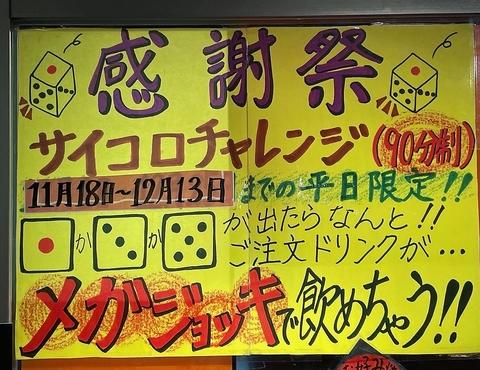 感謝祭
サイコロチャレンジ(90分制)
11月18日~12月13日までの平日限定!!
か か が出たらなんと!!
ご注文ドリンクが…
メガジョッキで飲めちゃう!!